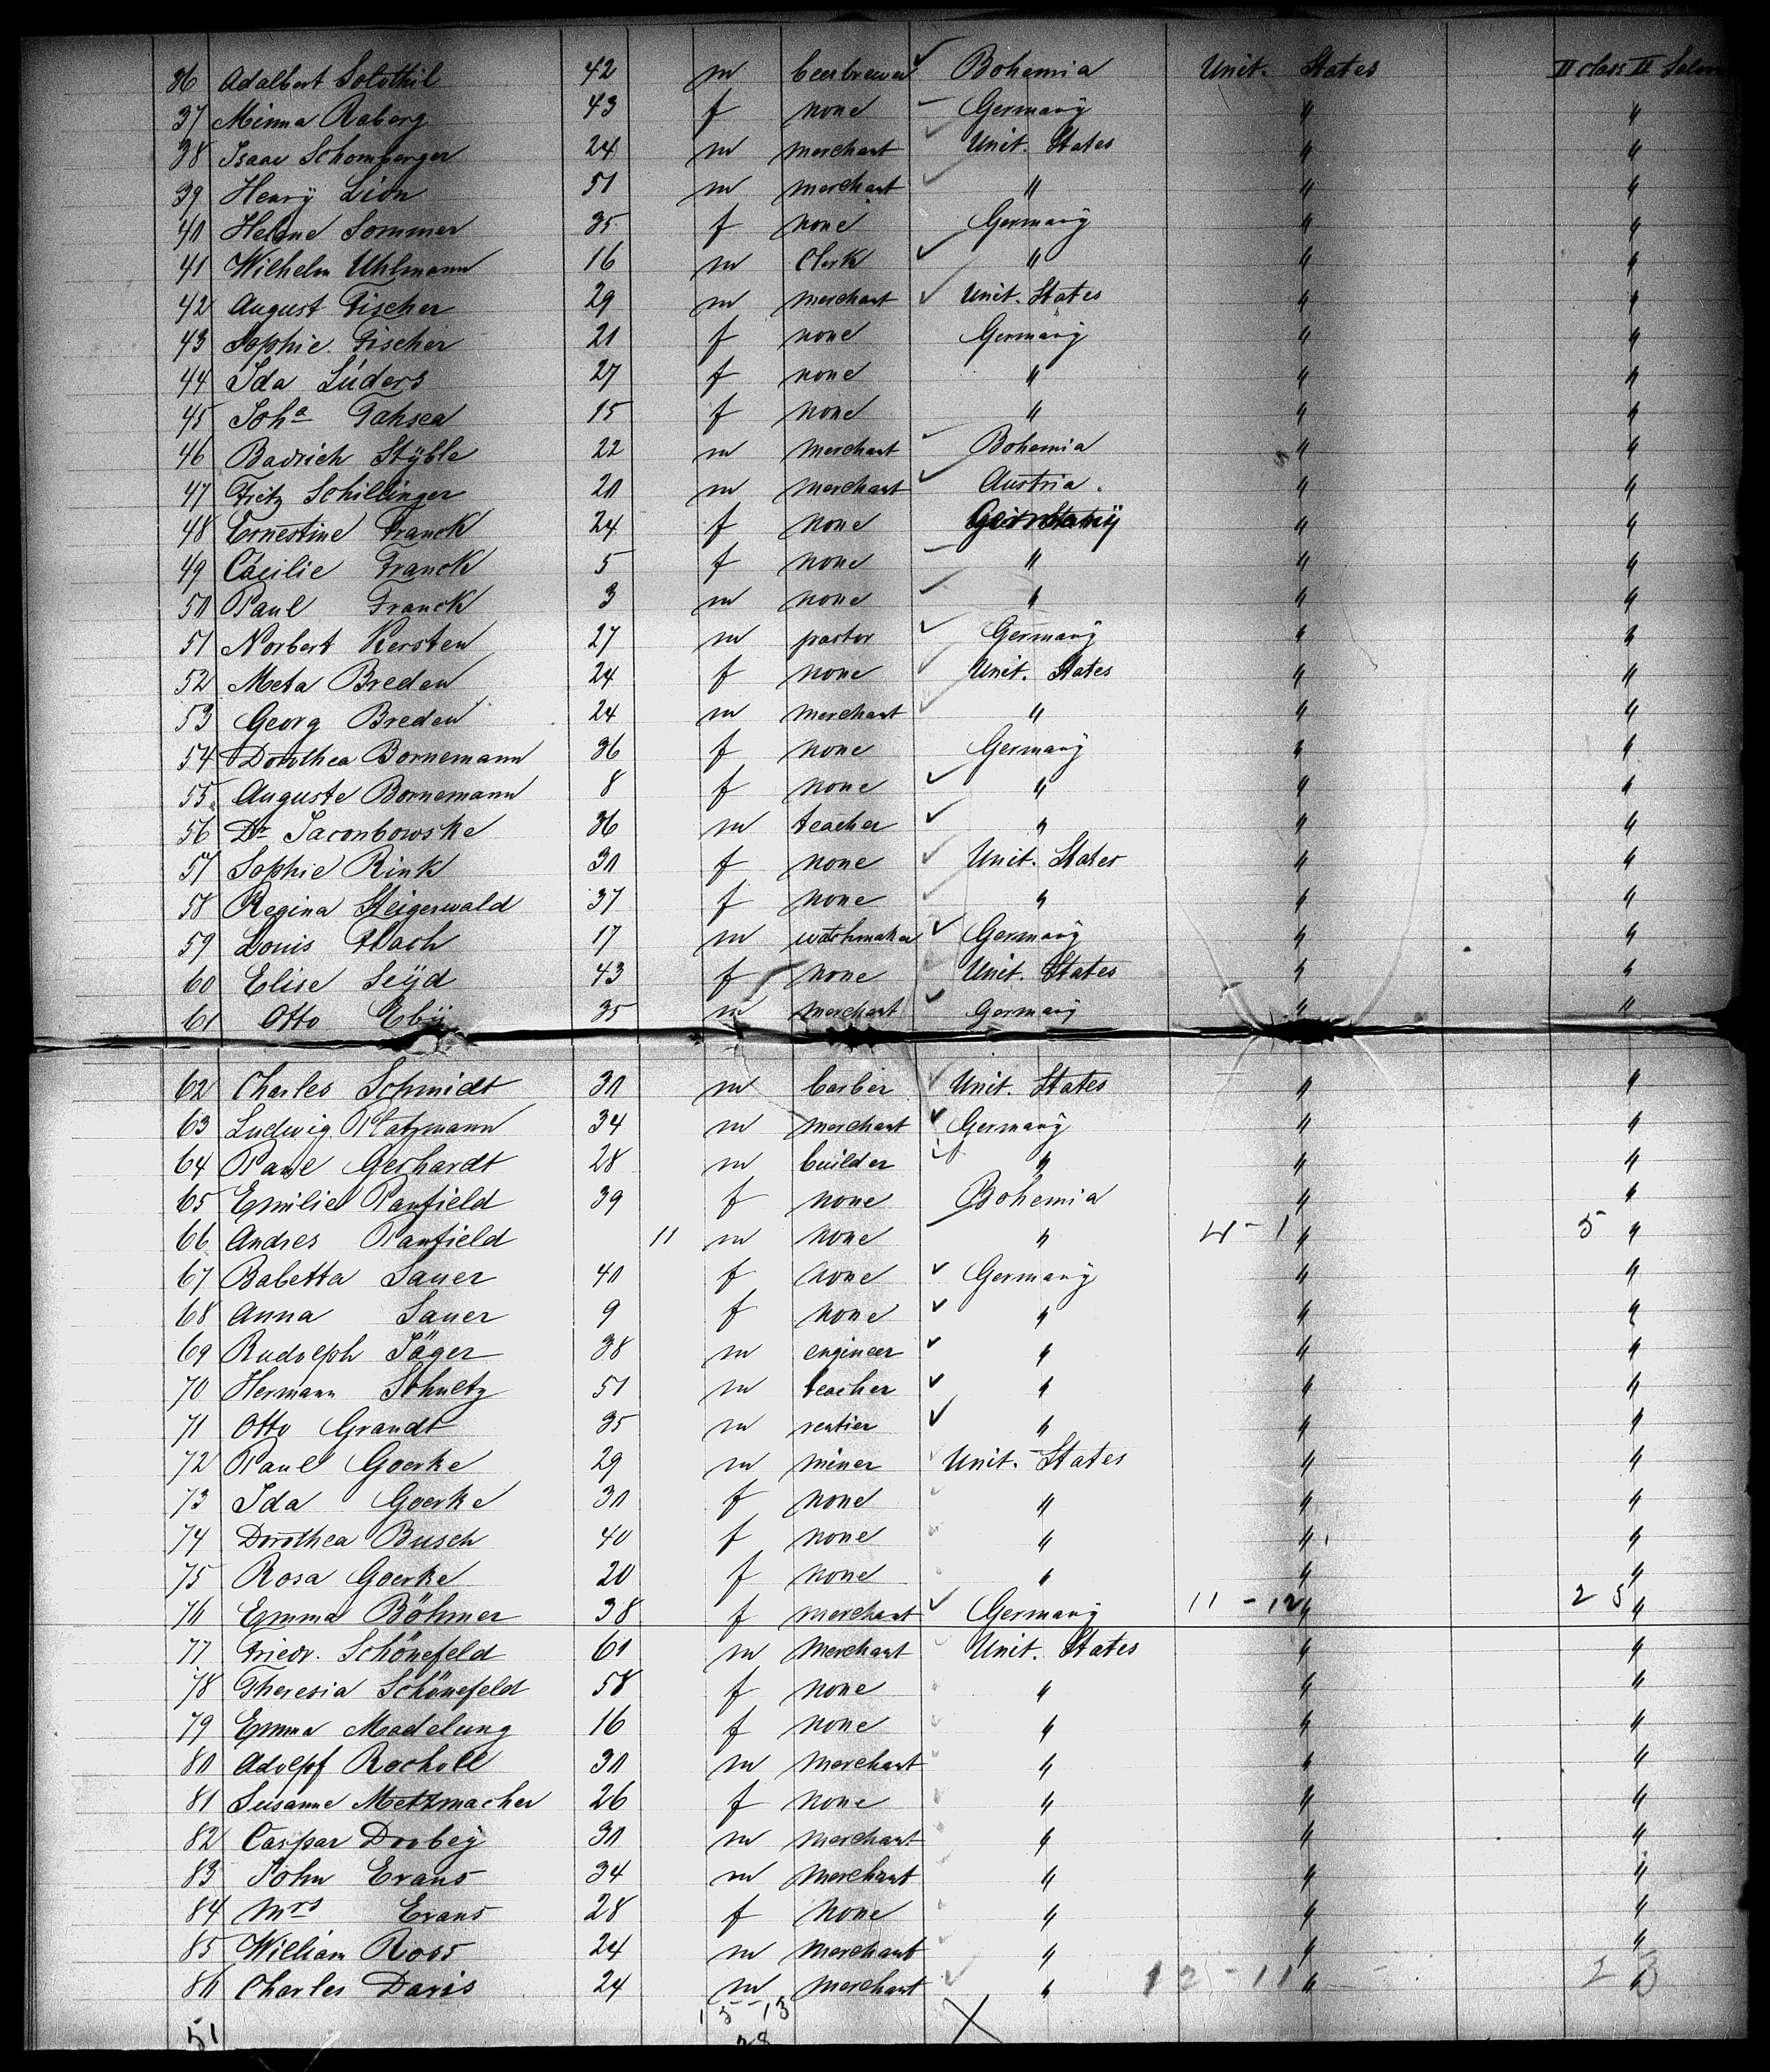 36 Adalbert Solothil 42 m beerbrewer Bohemia Unit. States II class II Salon
37 Minna Raberg 43 f none Germany " "
38 Isaac Schomberger 24 m merchant Unit. States " "
39 Henry Lion 51 m merchant " " "
40 Helene Sommer 35 f none Germany " "
41 Wilhelm Uhlmann 16 m Clerk " " "
42 August Fischer 29 m merchant Unit. States " "
43 Sophie Fischer 21 f none Germany " "
44 Ida Lüders 27 f none " " "
45 Joha 15 f none " " "
46 Badrich Stÿble 22 m merchant Bohemia " "
47 Fritz Schillinger 20 m merchant Austria. " "
48 Ernestine Franck 24 f none " "
49 Cäcilie Franck 5 f none " " "
50 Paul Franck 3 m none " " "
51 Norbert Kersten 27 m pastor Germany " "
52 Meta Breden 24 f none Unit. States " "
53 Georg Breden 24 m merchant " " "
54 Dorothea Bornemann 36 f none Germany " "
55 Auguste Bornemann 8 f none " " "
56 Dr Jaconbowske 36 m teacher " " "
57 Sophie Rink 30 f none Unit. States " "
58 Regina Steigerwald 37 f none " " "
59 Louis Flach 17 m watchmaker Germany " "
60 Elise Seÿd 43 f none Unit. States " "
61 Otto Ebÿ 35 m merchant Germany " "
62 Charles Schmidt 30 m barber Unit. States " "
63 Ludwig Platzmann 34 m merchant Germany " "
64 Paul Gerhardt 28 m builder " " "
65 Emilie Panfield 39 f none Bohemia " "
66 Andres Panfield 11 m none " 4-1 " 5 "
67 Babetta Sauer 40 f none Germany " "
68 Anna Sauer 9 f none " " "
69 Rudolph Jäger 38 m engineer " " "
70 Hermann Schultz 51 m teacher " " "
71 Otto Grandt 35 m rentier " " "
72 Paul Goerke 29 m miner Unit. States " "
73 Ida Goerke 30 f none " " "
74 Dorothea Busch 40 f none " " "
75 Rosa Goerke 20 f none " " "
76 Emma Böhmer 38 f merchant Germany 11-12 " 2 5 "
77 Friedr. Schönefeld 61 m merchant Unit. States " "
78 Theresia Schönefeld 58 f none " " "
79 Emma Madelung 16 f none " " "
80 Adolpf Rocholl 30 m merchant " " "
81 Susanne Metzmacher 26 f none " " "
82 Caspar Doobey 30 m merchant " " "
83 John Evans 34 m merchant " " "
84 Mrs Evans 28 f none " " "
85 William Ross 24 m merchant " " "
86 Charles Davis 24 m merchant " 12-11 " 2 3 "
51 15-13 X
28